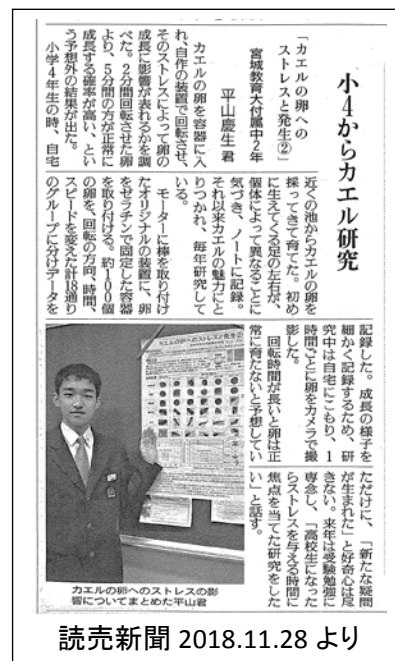 小4からカエル研究
「カエルの卵への
ストレスと発生②」
宮城教育大付属中2年
平山慶生君
カエルの卵を容器に入
れ、自作の装置で回転させ、
そのストレスによって卵の
成長に影響が表れるかを調
べた。2分間回転させた卵
より、5分間の方が正常に
成長する確率が高い、とい
う予想外の結果が出た。
小学4年生の時、自宅
近くの池からカエルの卵を
採ってきて育てた。初め
に生えてくる足の左右が、
個体によって異なることに
気づき、ノートに記録。
それ以来カエルの魅力にと
りつかれ、毎年研究して
いる。
モーターに棒を取り付け
たオリジナルの装置に、卵
をゼラチンで固定した容器
を取り付ける。約100個
の卵を、回転の方向、時間、
スピードを変えた計18通り
のグループに分けデータを
記録した。成長の様子を
細かく記録するため、研
究中は自宅にこもり、1
時間ごとに卵をカメラで撮
影した。
回転時間が長いと卵は正
常に育たないと予想してい
ただけに、「新たな疑問
が生まれた」と好奇心は尽
きない。来年は受験勉強に
専念し、「高校生になった
らストレスを与える時間に
焦点を当てた研究をした
い」と話す。
カエルの卵へのストレスと発生②
カエルの卵へのストレスの影
響についてまとめた平山君
読売新聞 2018.11.28 より